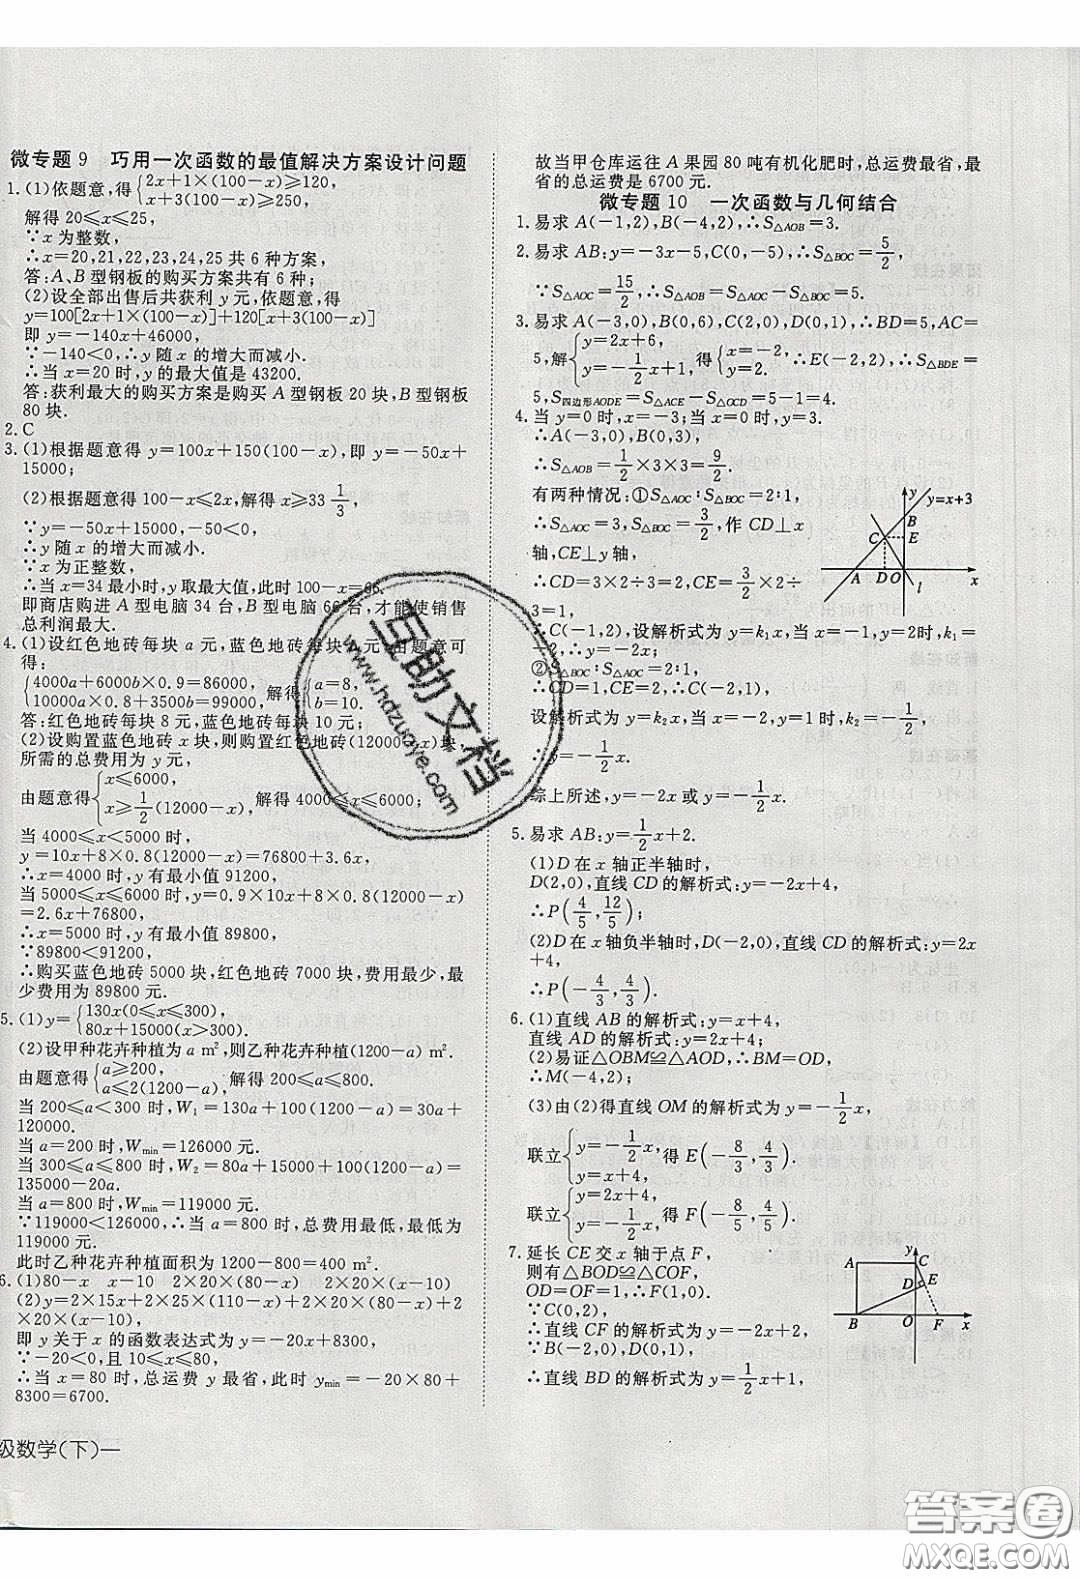 微专题9　巧用一次函数的最值解决方案设计问题
1.(1)依题意,得{2x+1×(100-x)≥120,
x+3(100-x)≥250,
解得 20≤x≤25,
∵x 为整数,
∴x=20,21,22,23,24,25 共 6 种方案,
答:A、B 型钢板的购买方案共有 6 种;
(2)设全部出售后共获利 y 元,依题意,得
y=100[2x+1×(100-x)]+120[x+3(100-x)]
即 y=-140x+46000,
∵-140<0,∴y 随 x 的增大而减小.
∴当 x=20 时,y 的最大值是 43200.
答:获利最大的购买方案是购买 A 型钢板 20 块,B 型钢板
80 块.
2.C
3.(1)根据题意得 y=100x+150(100-x),即 y=-50x+
15000;
(2)根据题意得 100-x≤2x,解得 x≥33 1/3,
∵y=-50x+15000,-50<0,
∴y 随 x 的增大而减小.
∵x 为正整数,
∴当 x=34 最小时,y 取最大值,此时 100-x=66.
即商店购进 A 型电脑 34 台,B 型电脑 66 台,才能使销售
总利润最大.
4.(1)设红色地砖每块 a 元,蓝色地砖每块 元,由题意可
得:
{4000a+6000b×0.9=86000,
10000a×0.8+3500b=99000, 解得{a=8,
b=10.
答:红色地砖每块 8 元,蓝色地砖每块 10 元;
(2)设购置蓝色地砖 x 块,则购置红色地砖(12000-x)块,
所需的总费用为 y 元,
由题意得{x≤6000,
x≥1/2(12000-x), 解得 4000≤x≤6000;
当 4000≤x<5000 时,
y=10x+8×0.8(12000-x)=76800+3.6x,
∴x=4000 时,y 有最小值 91200,
当 5000≤x≤6000 时,y=0.9×10x+8×0.8(12000-x)
=2.6x+76800,
∴x=5000 时,y 有最小值 89800,
∵89800<91200,
∴购买蓝色地砖 5000 块,红色地砖 7000 块,费用最少,最
少费用为 89800 元.
5.(1)y={130x(0≤x≤300),
80x+15000(x>300).
(2)设甲种花卉种植为 a m²,则乙种花卉种植(1200-a) m².
由题意得{a≥200,
a≤2(1200-a), 解得 200≤a≤800.
当 200≤a<300 时,W₁=130a+100(1200-a)=30a+
120000.
当 a=200 时,Wmin=126000 元.
当 300≤a≤800 时,W₂=80a+15000+100(1200-a)=
135000-20a.
当 a=800 时,Wmin=119000 元.
∵119000<126000,∴当 a=800 时,总费用最低,最低为
119000 元.
此时乙种花卉种植面积为 1200-800=400 m².
6.(1)80-x　x-10　2×20×(80-x)　2×20×(x-10)
(2)y=2×15x+2×25×(110-x)+2×20×(80-x)+2
×20×(x-10),
即 y 关于 x 的函数表达式为 y=-20x+8300,
∵-20<0,且 10≤x≤80,
∴当 x=80 时,总运费 y 最省,此时 ymin=-20×80+
8300=6700.
级数学(下)一
故当甲仓库运往 A 果园 80 吨有机化肥时,总运费最省,最
省的总运费是 6700 元.
微专题 10　一次函数与几何结合
1.易求 A(-1,2),B(-4,2),∴S△AOB=3.
2.易求 AB:y=-3x-5,C(0,-5),∴S△BOC=5/2,
∵S△AOC=15/2,∴S△AOB=S△AOC-S△BOC=5.
3.易求 A(-3,0),B(0,6),C(2,0),D(0,1),∴BD=5,AC=
5,解{y=2x+6,
y=-1/2x+1, 得{x=-2,
y=2. ∴E(-2,2),∴S△BDE=
5,S四边形AODE=S△ACE-S△OCD=5-1=4.
4.当 y=0 时,x=-3;当 x=0 时,y=3.
∴A(-3,0),B(0,3),
∴S△AOB=1/2×3×3=9/2.
有两种情况:①S△AOC∶S△BOC=2∶1,
∴S△AOC=3,S△BOC=3/2,作 CD⊥x
轴,CE⊥y 轴,
∴CD=3×2÷3=2,CE=3/2×2÷
3=1,
∴C(-1,2),设解析式为 y=k₁x,当 x=-1,y=2时,k₁=
-2,∴y=-2x;
②S△BOC∶S△AOC=2∶1,
∴CD=1,CE=2,∴C(-2,1),
设解析式为 y=k₂x,当 x=-2,y=1 时,k₂=-1/2,
∴y=-1/2x.
综上所述,y=-2x 或 y=-1/2x.
y=x+3
B
C
E
A
D
O
l
x
5.易求 AB:y=1/2x+2.
(1)D 在 x 轴正半轴时,
D(2,0),直线 CD 的解析式:y=-2x+4,
∴P(4/5,12/5);
(2)D 在 x 轴负半轴时,D(-2,0),直线 CD 的解析式:y=2x
+4,
∴P(-4/3,4/3).
6.(1)直线 AB 的解析式:y=x+4,
直线 AD 的解析式:y=2x+4;
(2)易证△OBM≌△AOD,∴BM=OD,
∴M(-4,2);
(3)由(2)得直线 OM 的解析式为 y=-1/2x,
联立{y=-1/2x,
y=x+4, 得 E(-8/3,4/3),
联立{y=2x+4,
y=-1/2x, 得 F(-8/5,4/5).
7.延长 CE 交 x 轴于点 F,
则有△BOD≌△COF,
OD=OF=1,∴F(1,0),
∵C(0,2),
∴直线 CF 的解析式为 y=-2x+2;
∵B(-2,0),D(0,1),
∴直线 BD 的解析式为 y=1/2x+1,
y
A
C
D
E
B
O
F
x
互助文档
www.hdzuoye.com
答案卷
MXQE.COM